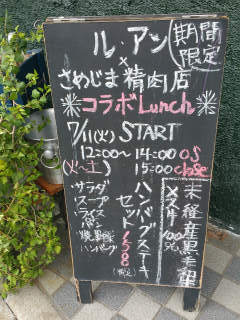 ル・アン
(期間限定)
×
さめじま精肉店
コラボLunch
7/11(火) START
12:00〜 14:00 OS
(火〜土) 15:00 close
未経産黒毛和牛
メス牛100%
ハンバーグステーキ
セット 1,580
(税込)
・サラダ
・スープ
・ライス